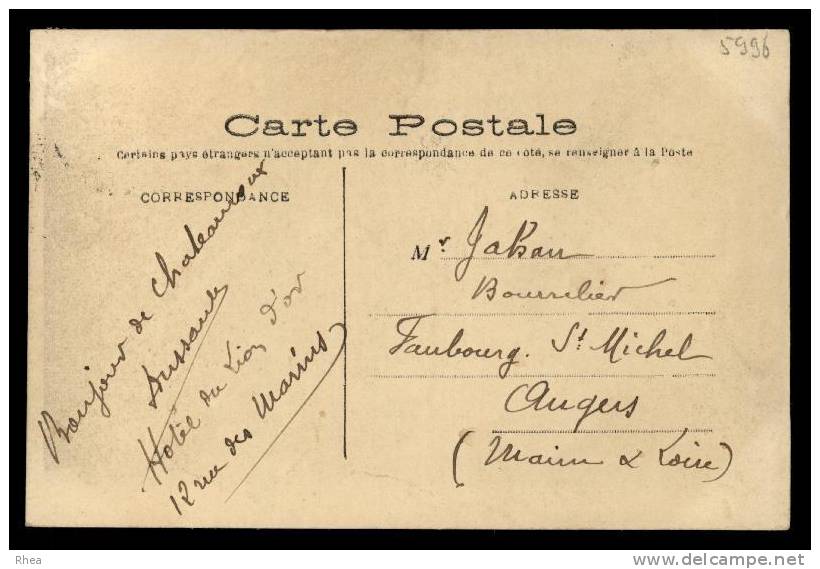 5996
Carte Postale
Certains pays étrangers n'acceptant pas la correspondance de ce côté, se renseigner à la Poste
CORRESPONDANCE
ADRESSE
Bonjour de Chateauroux
Hôtel du Lion d'or
12 rue des Marins
Mr
Bourrelier
Faubourg. St Michel
Angers
(Maine & Loire)
Rhea
www.delcampe.net